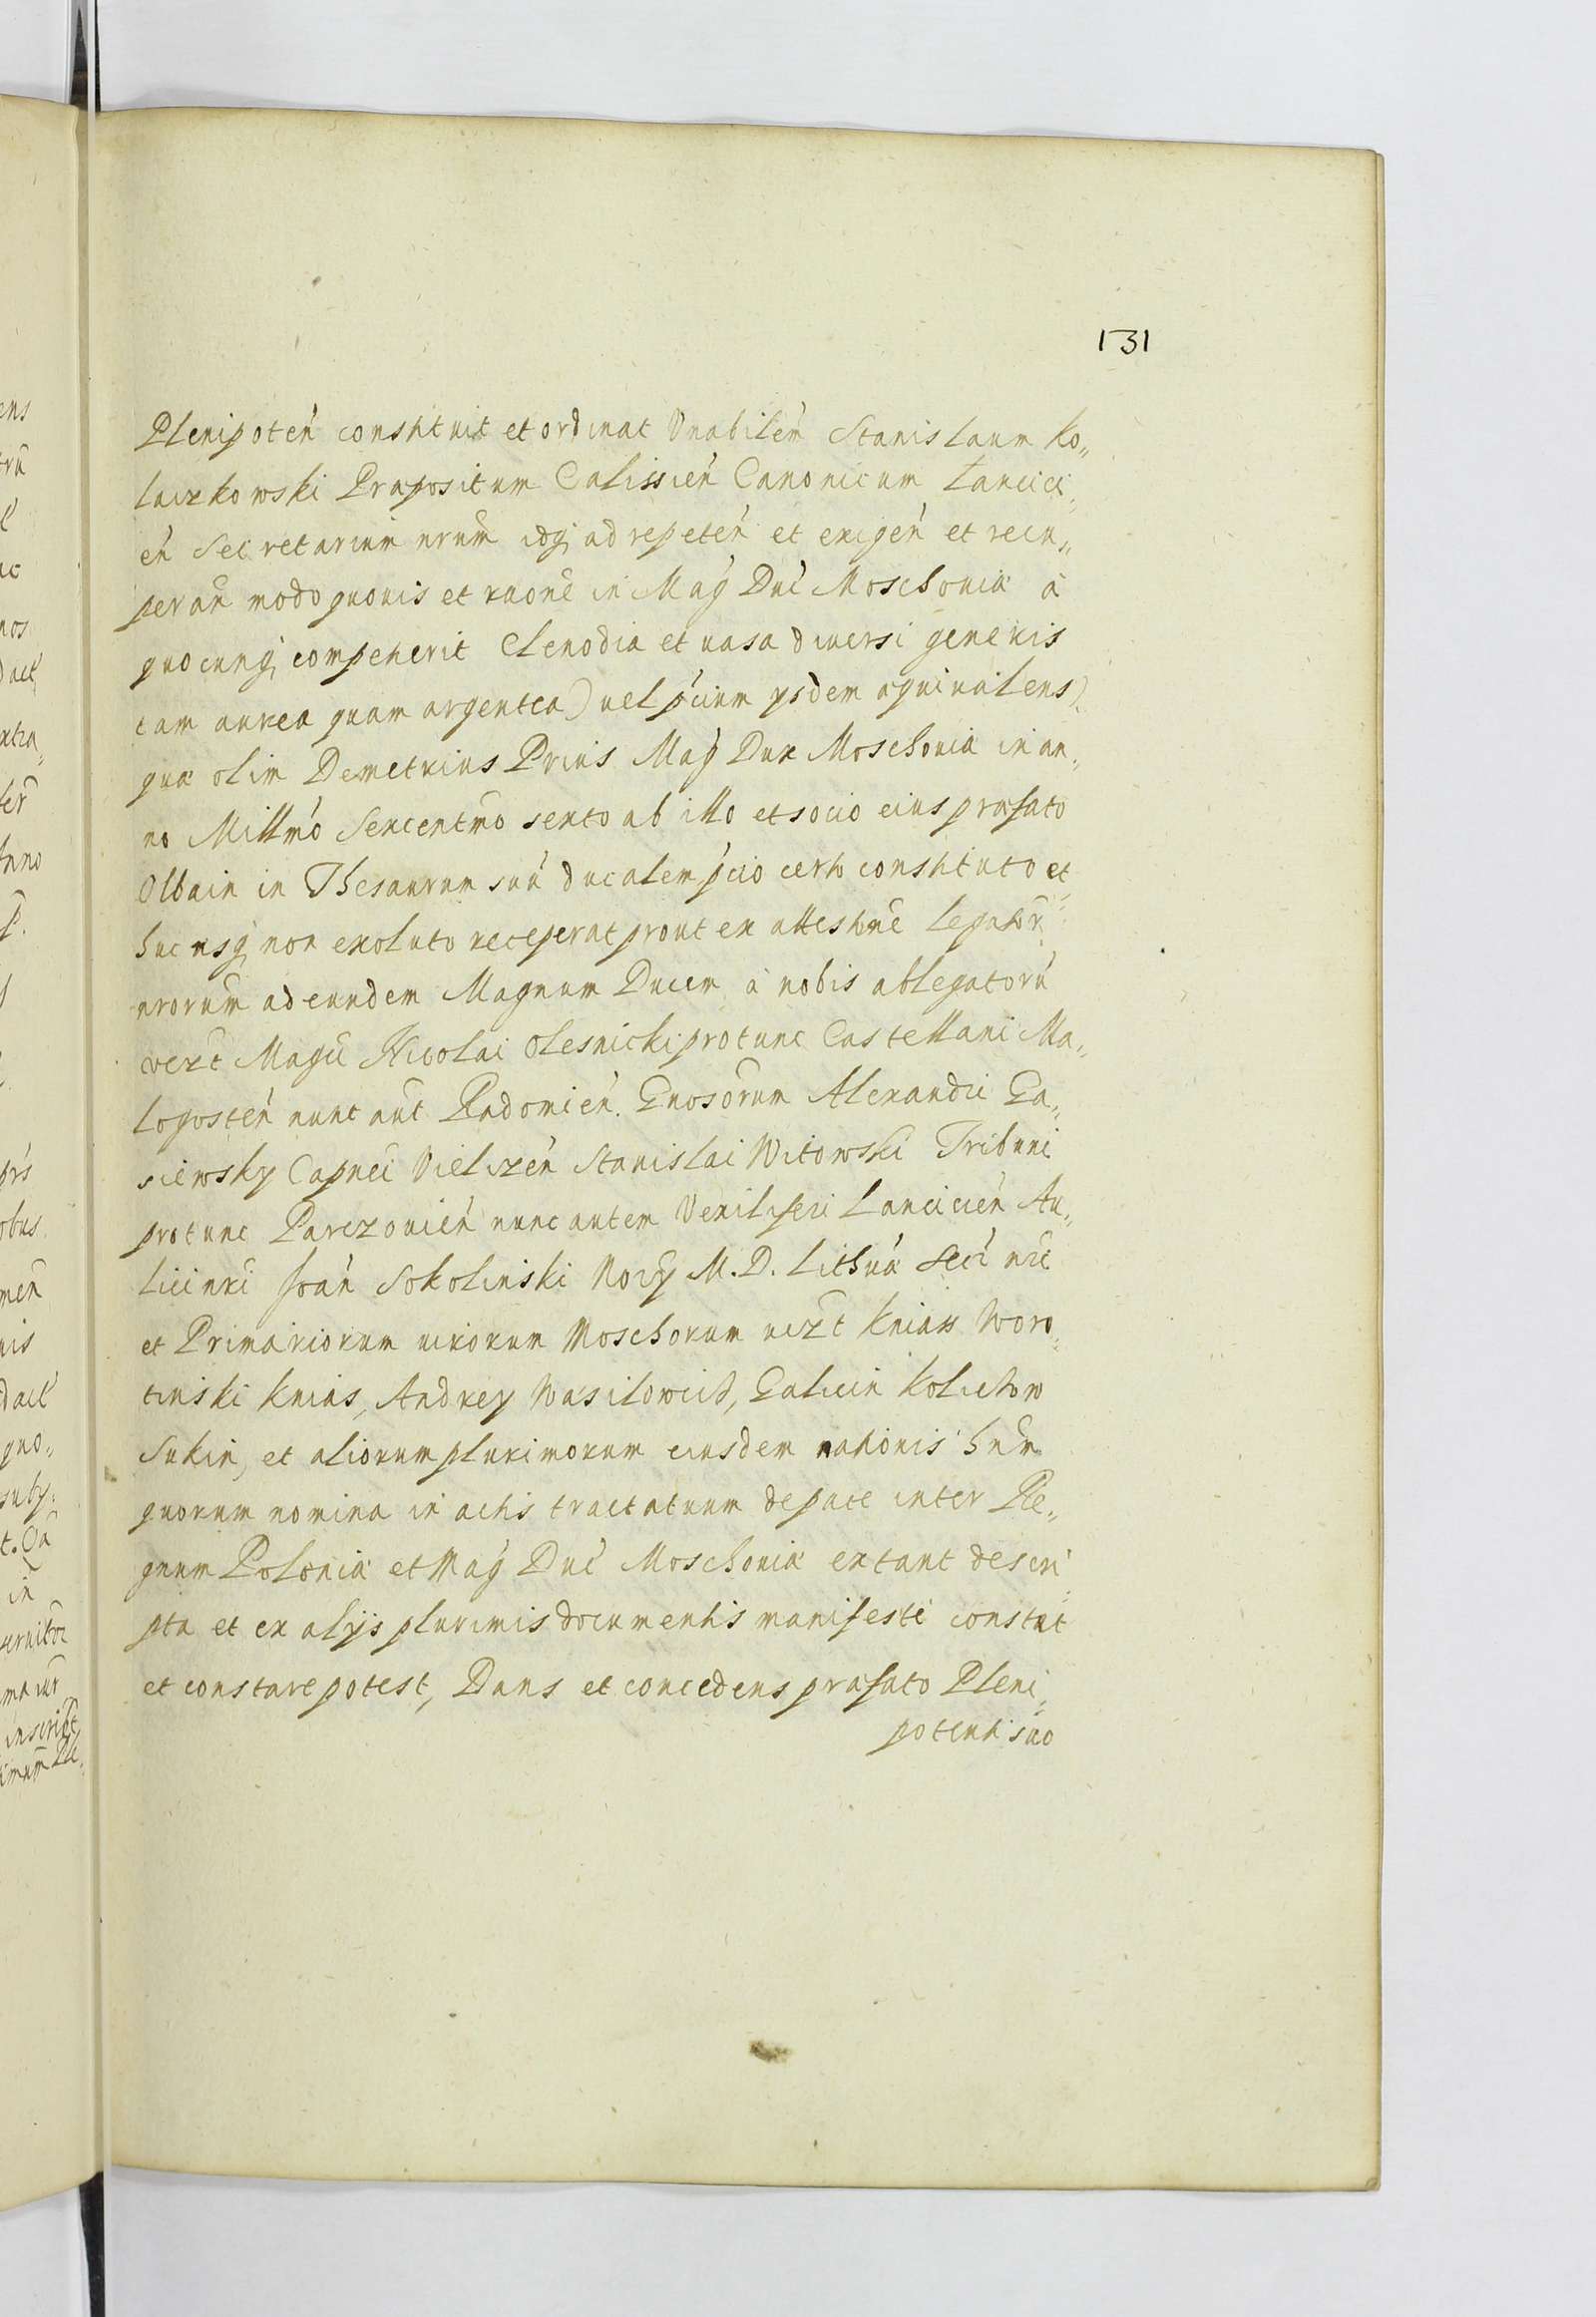 131
Plenipoten̄ constituit et ordinat Vnabilem̄ Stanislaum Ko„
laczkowski Præpositum Calissien̄ Canonicum Lancici„
en̄ Secretarium nrum̄ idq; ad repeten̄ et exigen̄ et recu„
peran̄ modo quouis et raone in Mag Duc̄ Moschouiæ à
quocunq; compererit Clenodia et uasa diuersi generis
tam aurea quam argentea) uel pcium ysdem æquiualens)
quæ olim Demetrius Prius Mag Dux Moschouiæ in an„
no Millmo Sexcentmo sexto ab illo et socio eius præfato
Olbain in Thesaurum suū ducalem pcio certo constituto et
huc usq; non exoluto receperat prout ex attestone legator̄
nrorum̄ ad eundem Magnum Ducem à nobis ablegatorū
vczt Magci Nicolai Olesnicki pro tunc Castellani Ma„
logosten̄ nunc aut̄ Radomien̄. Gnosorum Alexandri Ga„
siewsky Capnei Vielizen̄ Stanislai Witowski Tribuni
pro tunc Parczouien̄ nunc autem Vexiliferi Lancicien̄ Au„
lici nri Joan̄ Sokolinski Nory M. D. Lithuæ Secr̄ nri
et Primariorum uirorum Moschorum uczt Kniass Woro„
tinski Knias, Andrey Wasilowicz, Galicin Kolichow
Sukin, et aliorum plurimorum eiusdem nationis hnm̄
quorum nomina in actis tractatuum de pace inter Re„
gnum Poloniæ et Mag Duc̄ Moschouiæ extant descri„
pta et ex alijs plurimis documentis manifeste constat
et constare potest, Dans et concedens præfato Pleni„
potenti suo